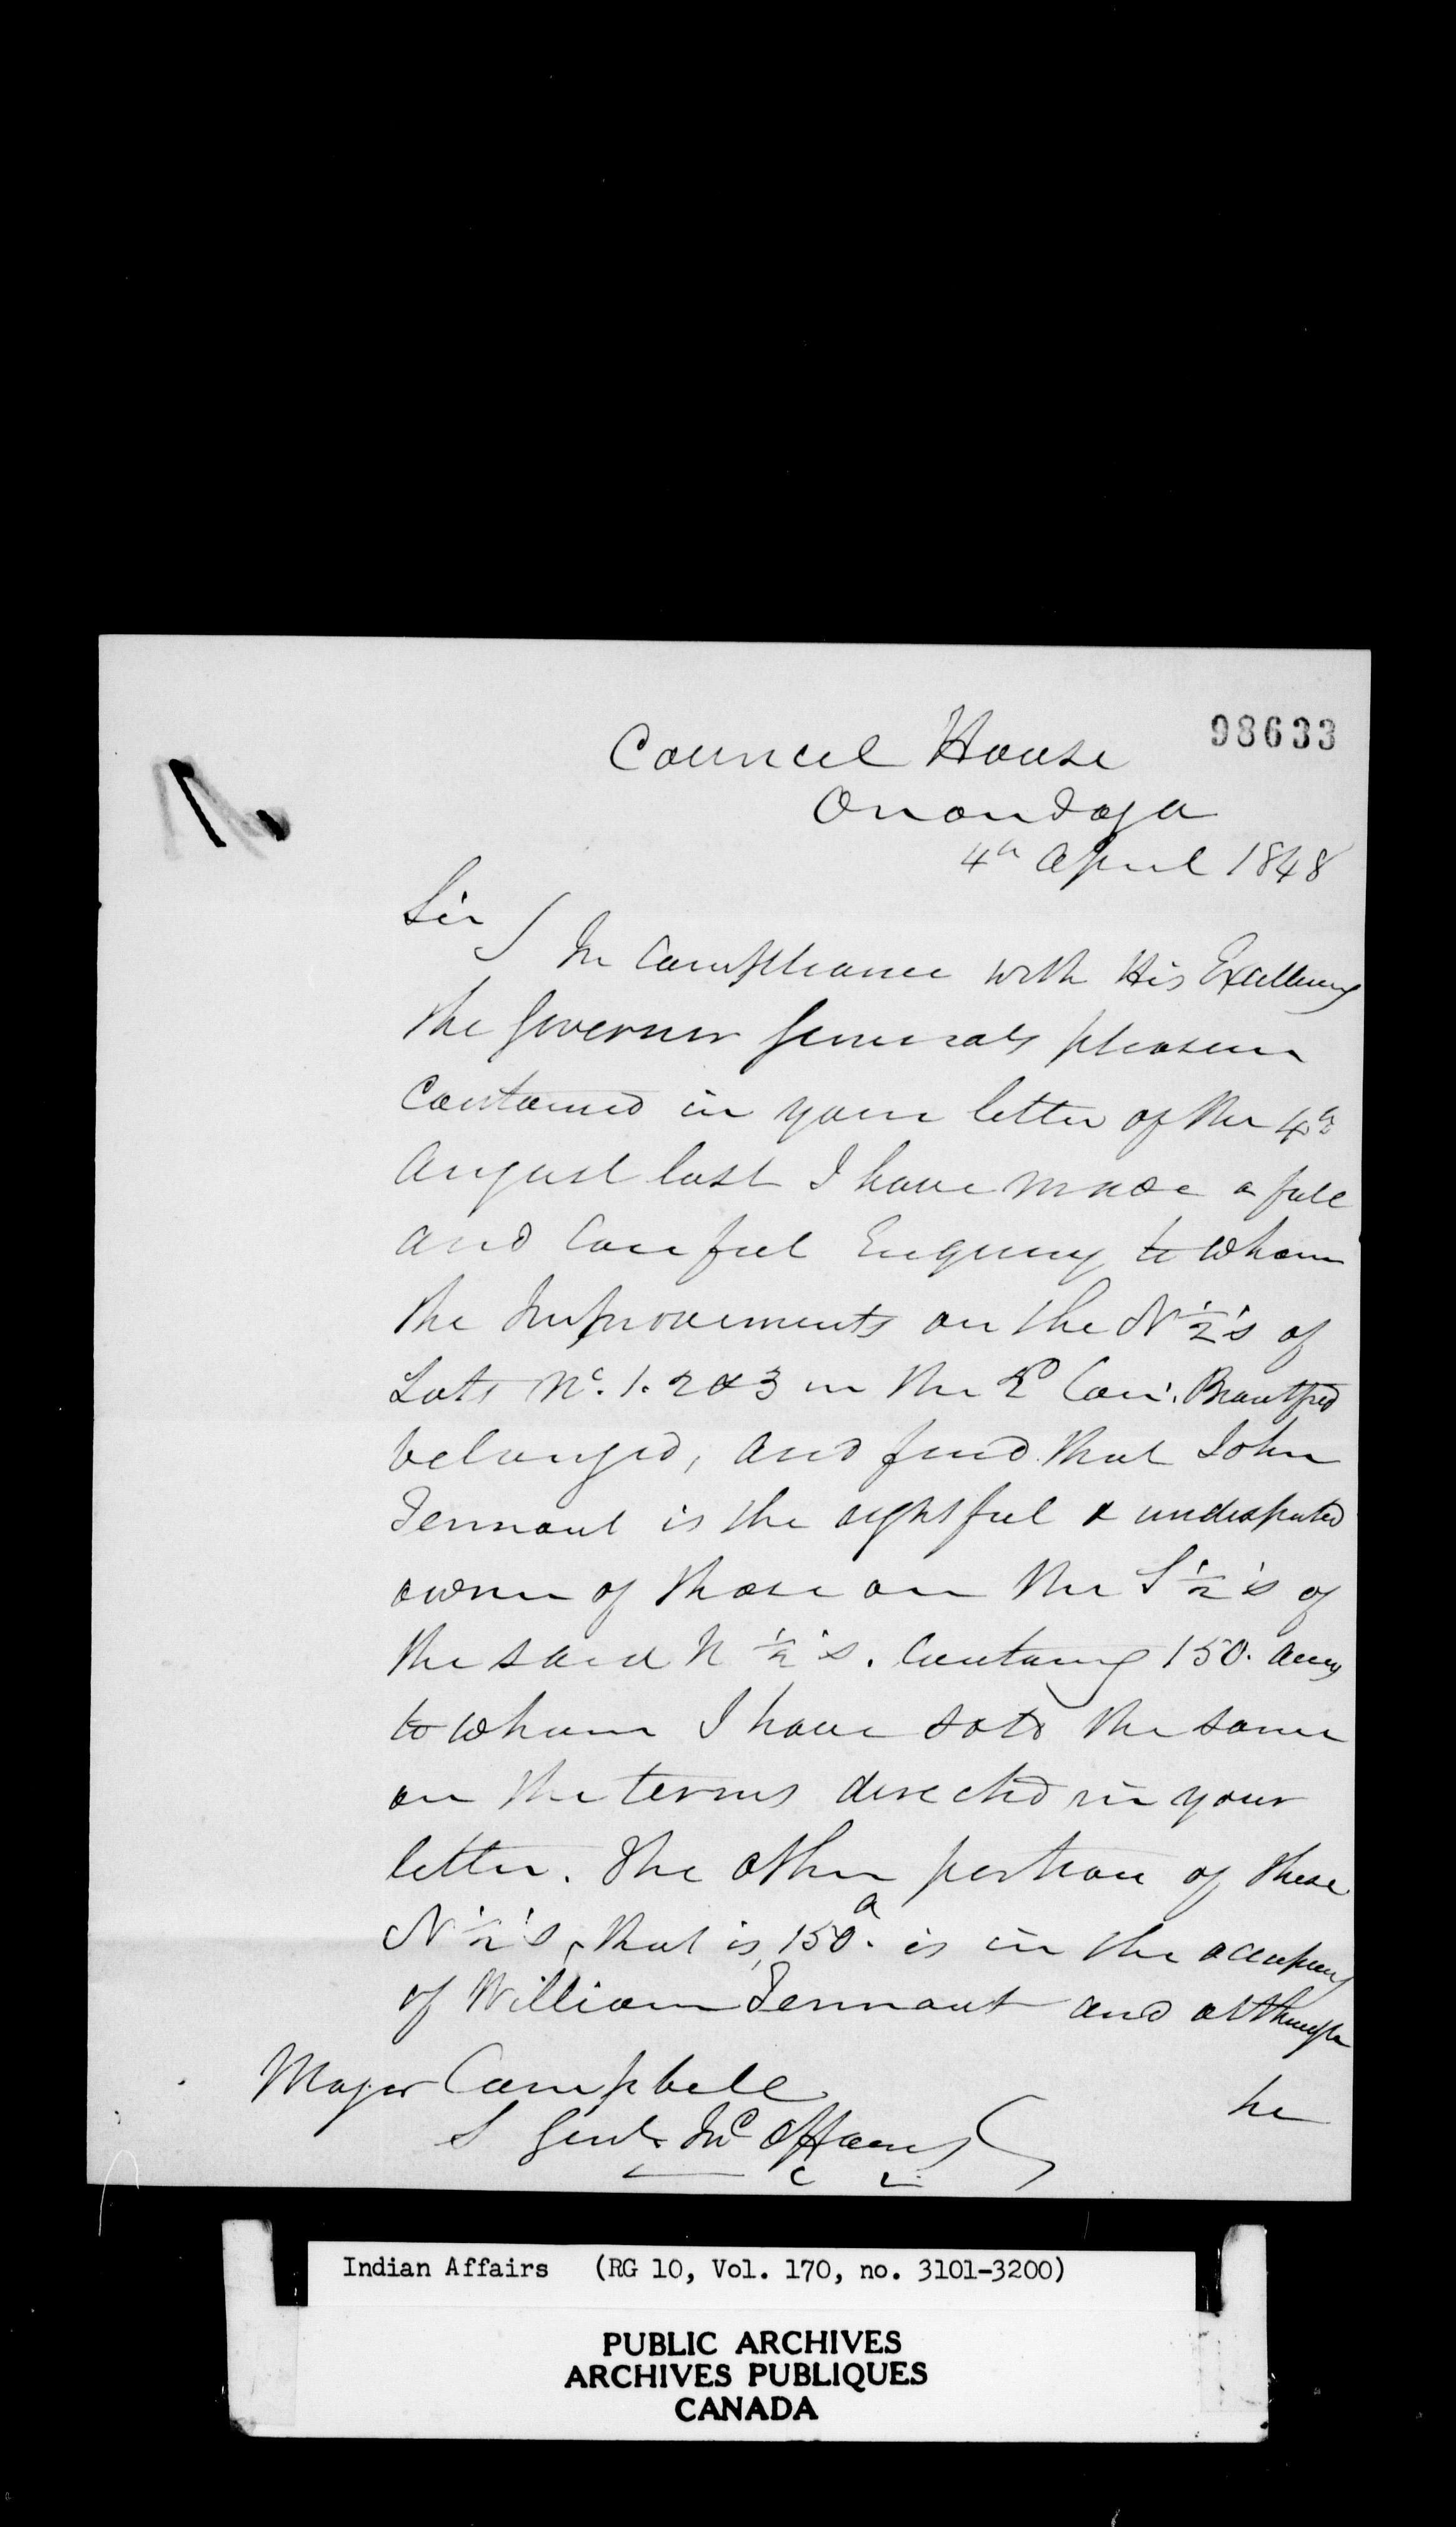 98633
Council House
Onondaga
4th April 1848
Sir
In Compliance with His Excellency
the Governor Generals pleasure
Contained in your letter of the 4th
August last I have made a full
and Careful Enquiry to whom
the Improvements on the N ½'s of
Lots No. 1. 2 & 3 in the 2d Con. Brantford
belonged, and find that John
Tennant is the rightful & undisputed
owner of those on the S ½'s of
the said N ½'s. Containg 150. acres
to whom I have sold the same
on the terms directed in your
letter. The other portion of these
N ½'s, that is, 150a. is in the occupancy
of William Tennant and although
he
Major Campbell
S Genl. In Affairs
Indian Affairs (RG 10, Vol. 170, no. 3101-3200)
PUBLIC ARCHIVES
ARCHIVES PUBLIQUES
CANADA